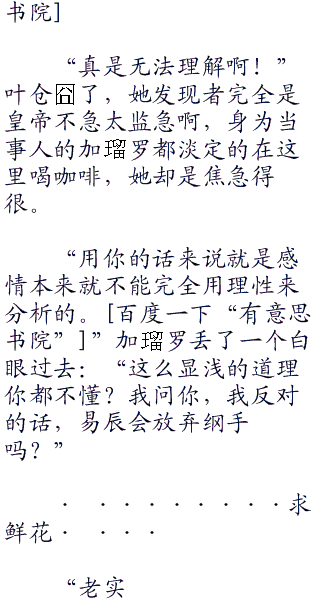 书院]
“真是无法理解啊！”
叶仓囧了，她发现者完全是
皇帝不急太监急啊，身为当
事人的加瑠罗都淡定的在这
里喝咖啡，她却是焦急得
很。
“用你的话来说就是感
情本来就不能完全用理性来
分析的。[百度一下“有意思
书院”]”加瑠罗丢了一个白
眼过去：“这么显浅的道理
你都不懂？我问你，我反对
的话，易辰会放弃纲手
吗？”
· · · · · · · · ·求
鲜花· · · ·
“老实